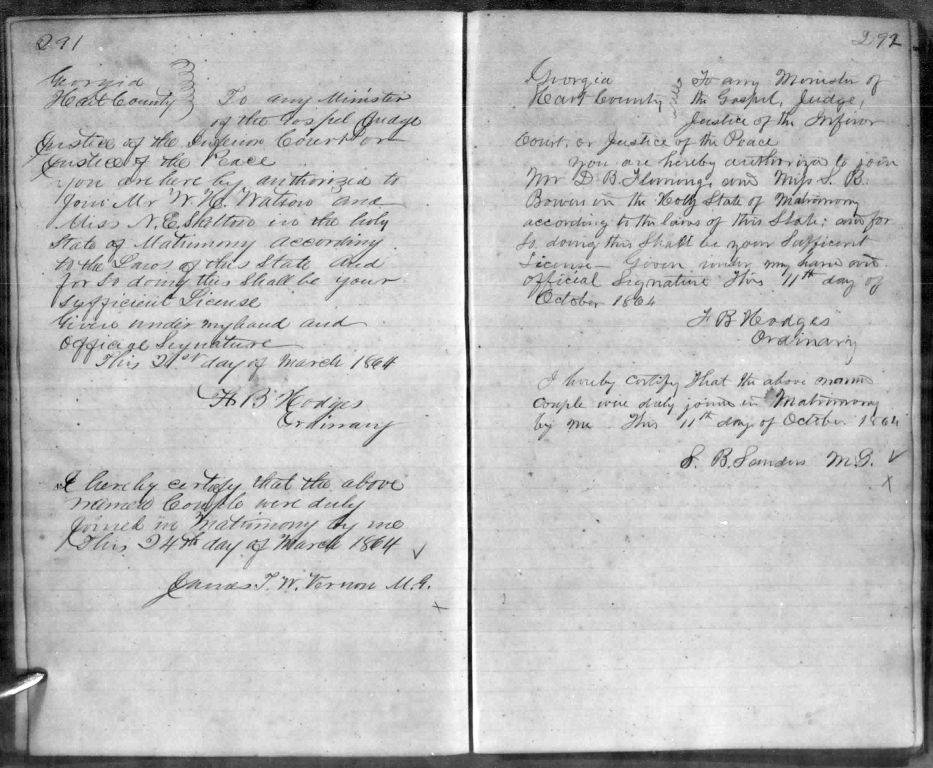 291
Georgia
Hart County To any Minister
of the Gospel Judge
Justice of the Inferior Court or
Justice of the Peace
You are here by authorized to
Join Mr W. H. Watson and
Miss N. E. Skelton in the holy
State of Matrimony according
to the Laws of this State and
for So doing this Shall be your
Sufficient License
Given under my hand and
Official Signature
This 21st day of March 1864
F. B. Hodges
Ordinary
I hereby certify that the above
named Couple were duly
Joined in Matrimony by me
This 24th day of March 1864
James T. W. Vernon M.G.
292
Georgia
Hart County To any Minister of
the Gospel, Judge,
Justice of the Inferior
Court, or Justice of the Peace
You are hereby authorize to join
Mr D. B. Fleming, and Miss S. B.
Bowers in the Holy State of Matrimony
according to the laws of this State; and for
So doing this Shall be your Sufficient
License Given under my hand and
official Signature This 11th day of
October 1864
F. B. Hodges
Ordinary
I hereby certify That the above named
couple were duly joined in Matrimony
by me This 11th day of October 1864
S. B. Sanders M.G.